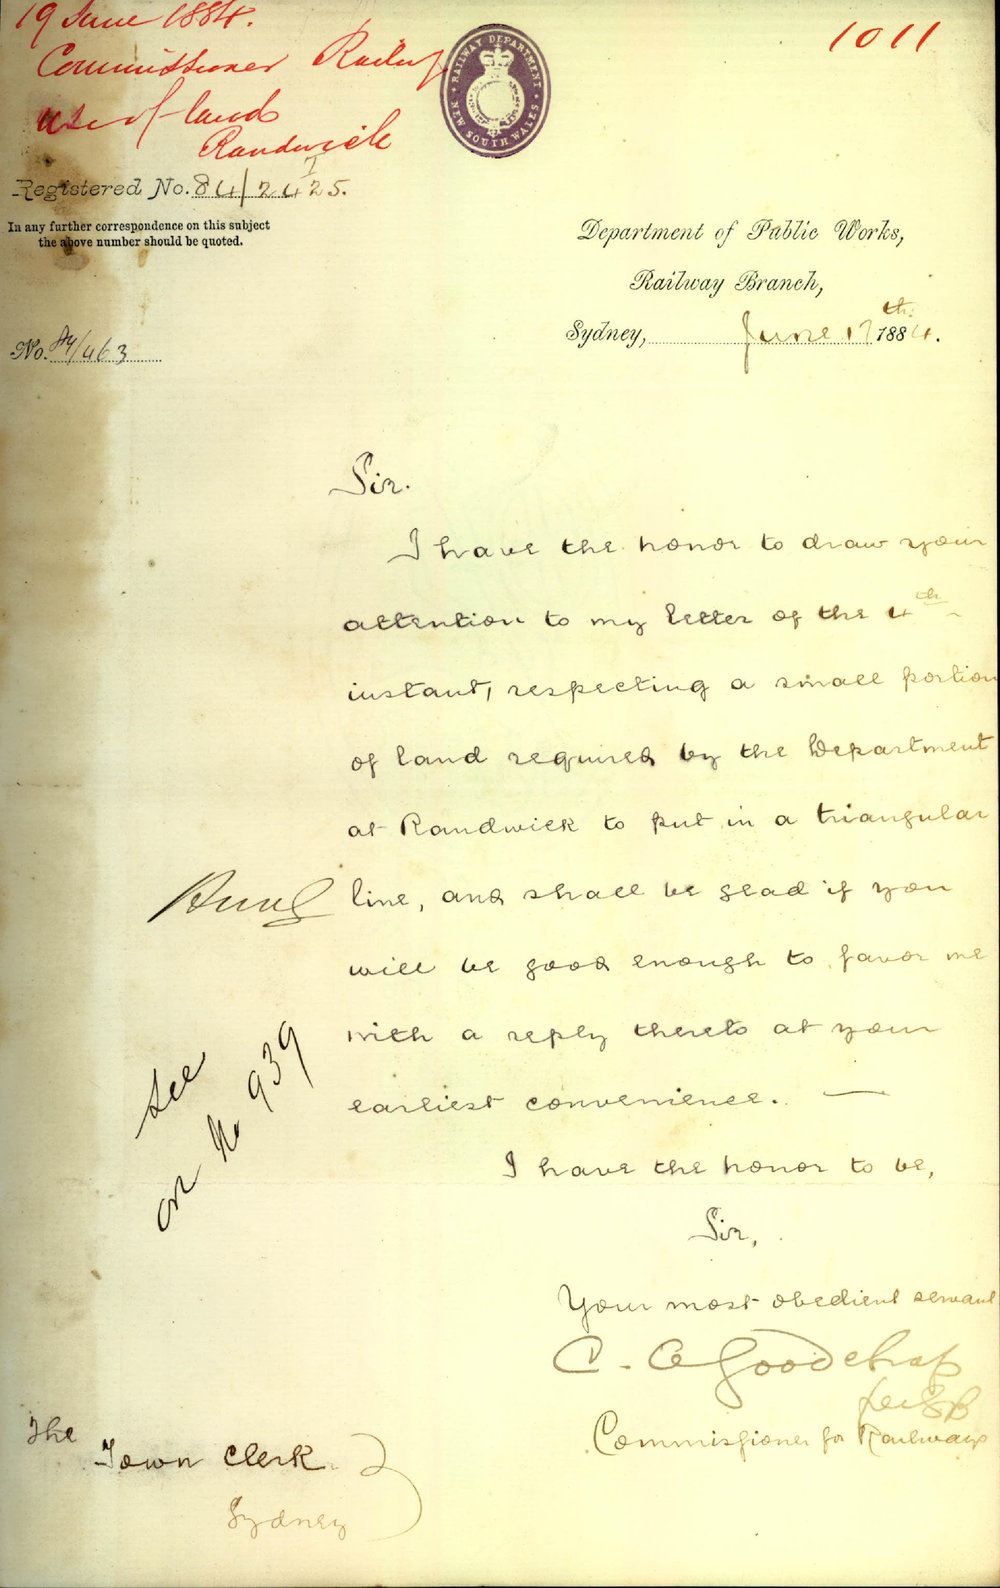 19 June 1884.
Commissioner Railwy
use of land
Randwick
1011
RAILWAY DEPARTMENT
NEW SOUTH WALES
Registered No. 84/2425.
I
In any further correspondence on this subject
the above number should be quoted.
Department of Public Works,
Railway Branch,
Sydney, June 17th 1884.
No. 84/463
Sir.
I have the honor to draw your
attention to my letter of the 4th
instant, respecting a small portion
of land required by the Department
at Randwick to put in a triangular
line, and shall be glad if you
will be good enough to favor me
with a reply thereto at your
earliest convenience. —
See
on No 939
I have the honor to be,
Sir,
Your most obedient servant
C. A Goodchap
Commissioner for Railways
The
Town Clerk
Sydney